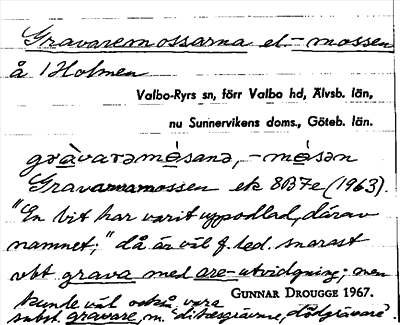 Gravaremossarna el. -mossen
å 1 Holmen
Valbo-Ryrs sn, förr Valbo hd, Älvsb. län,
nu Sunnervikens doms., Göteb. län.
gràvaramósana, -mósan
Gravarnamossen ek 8B7e (1963).
"En bit har varit uppodlad, därav
namnet;" då är väl f. led. snarast
vbt grava med are-utvidgning; men
kunde väl också vara GUNNAR DROUGGE 1967.
subst. gravare, m. "dikesgrävare, dödgrävare".